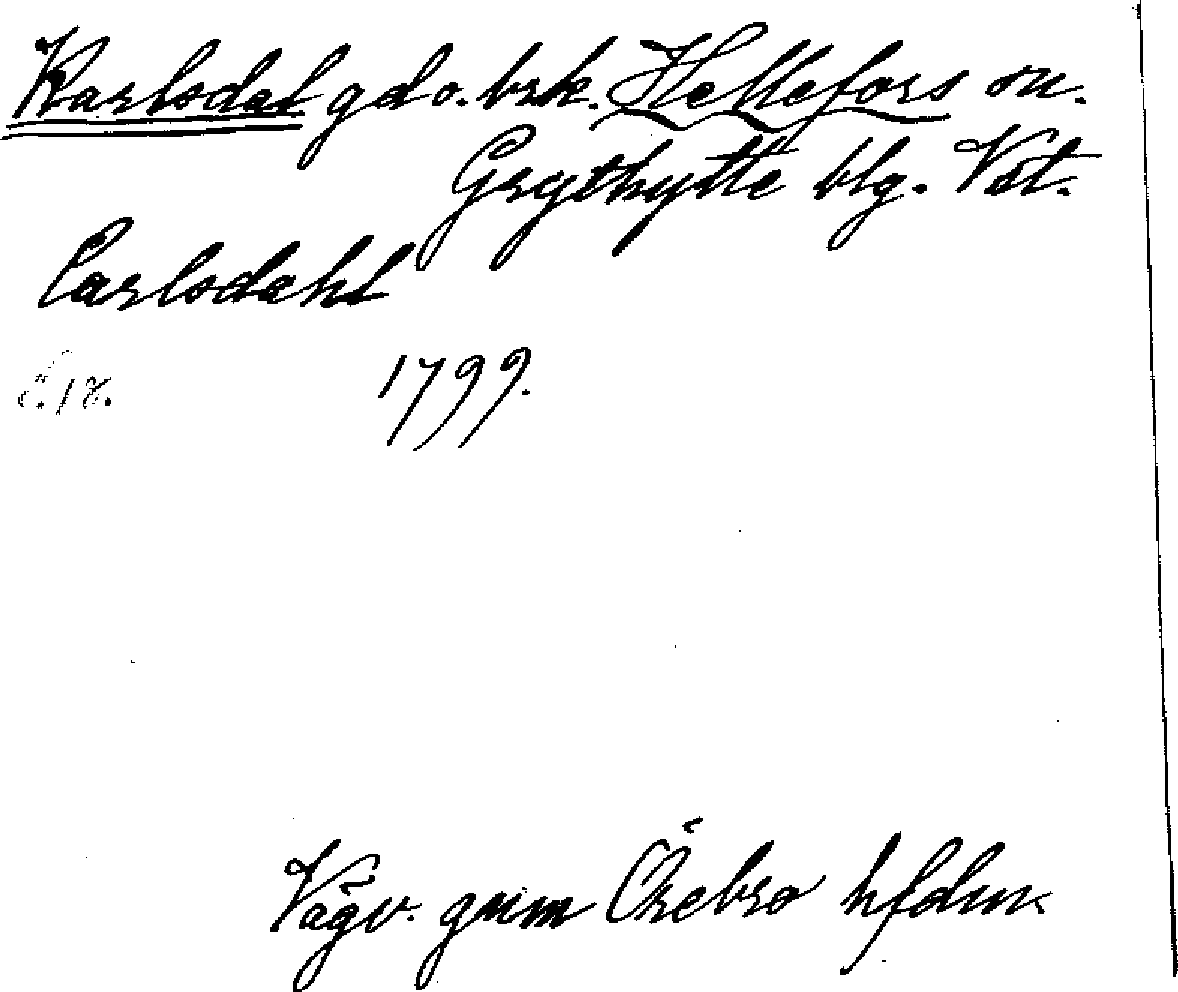 Karlsdal gd o. brk. Hellefors sn.
Grythytte blg. Vst.
Carlsdahl
1799.
Vägv. gnm Örebro hfdm.